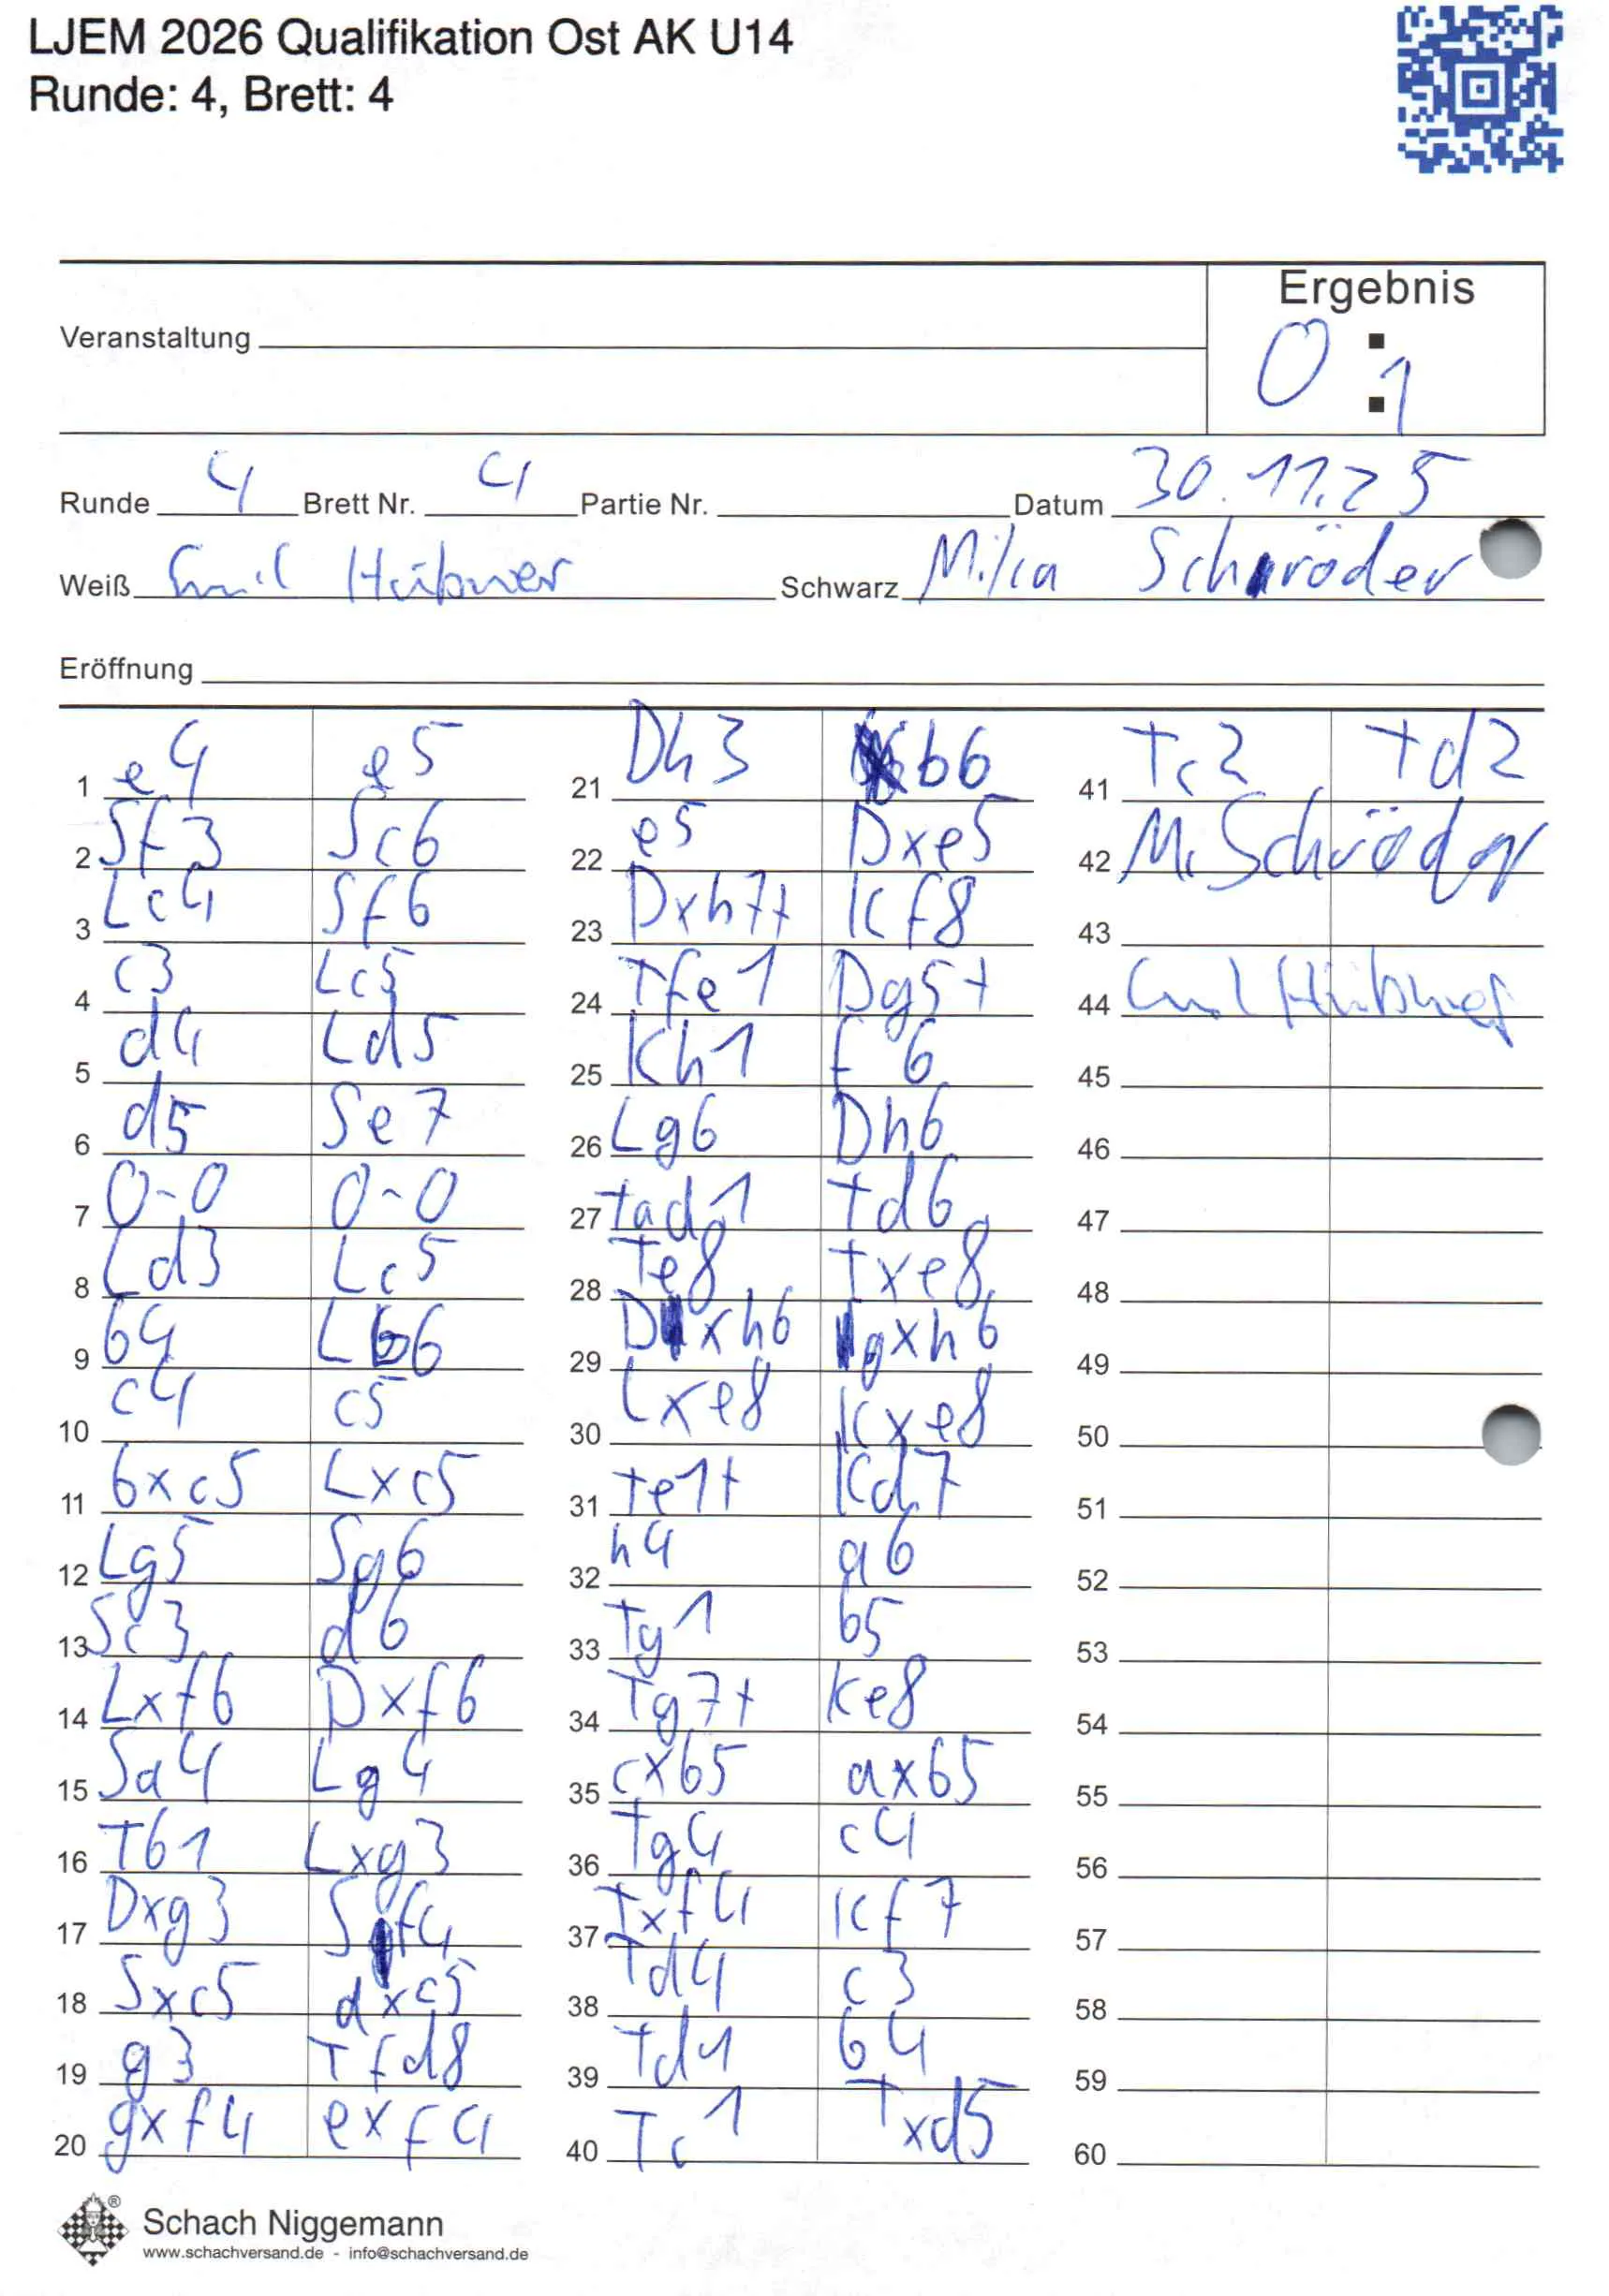 LJEM 2026 Qualifikation Ost AK U14
Runde: 4, Brett: 4
Ergebnis
Veranstaltung
0 : 1
Runde 4 Brett Nr. 4 Partie Nr. Datum 30.11.25
Weiß Emil Hübner Schwarz Milka Schröder
Eröffnung
1 e4 e5
2 Sf3 Sc6
3 Lc4 Sf6
4 c3 Lc5
5 d4 Ld5
6 d5 Se7
7 0-0 0-0
8 Ld3 Lc5
9 b4 Lb6
10 c4 c5
11 bxc5 Lxc5
12 Lg5 Sg6
13 Sc3 d6
14 Lxf6 Dxf6
15 Sa4 Lg4
16 Tb1 Lxg3
17 Dxg3 Sf4
18 Sxc5 dxc5
19 g3 Tfd8
20 gxf4 exf4
21 Dh3 b6
22 e5 Dxe5
23 Dxh7+ Kf8
24 Tfe1 Dg5+
25 Kh1 f6
26 Lg6 Dh6
27 Tad1 Td6
28 Te8 Txe8
29 Dxh6 gxh6
30 Lxe8 Kxe8
31 Te1+ Kd7
32 h4 a6
33 Tg1 b5
34 Tg7+ Ke8
35 cxb5 axb5
36 Tg4 c4
37 Txf4 Kf7
38 Td4 c3
39 Td1 b4
40 Tc1 Txd5
41 Tc2 Td2
42 M. Schröder
43
44 Emil Hübner
45
46
47
48
49
50
51
52
53
54
55
56
57
58
59
60
Schach Niggemann
www.schachversand.de - info@schachversand.de